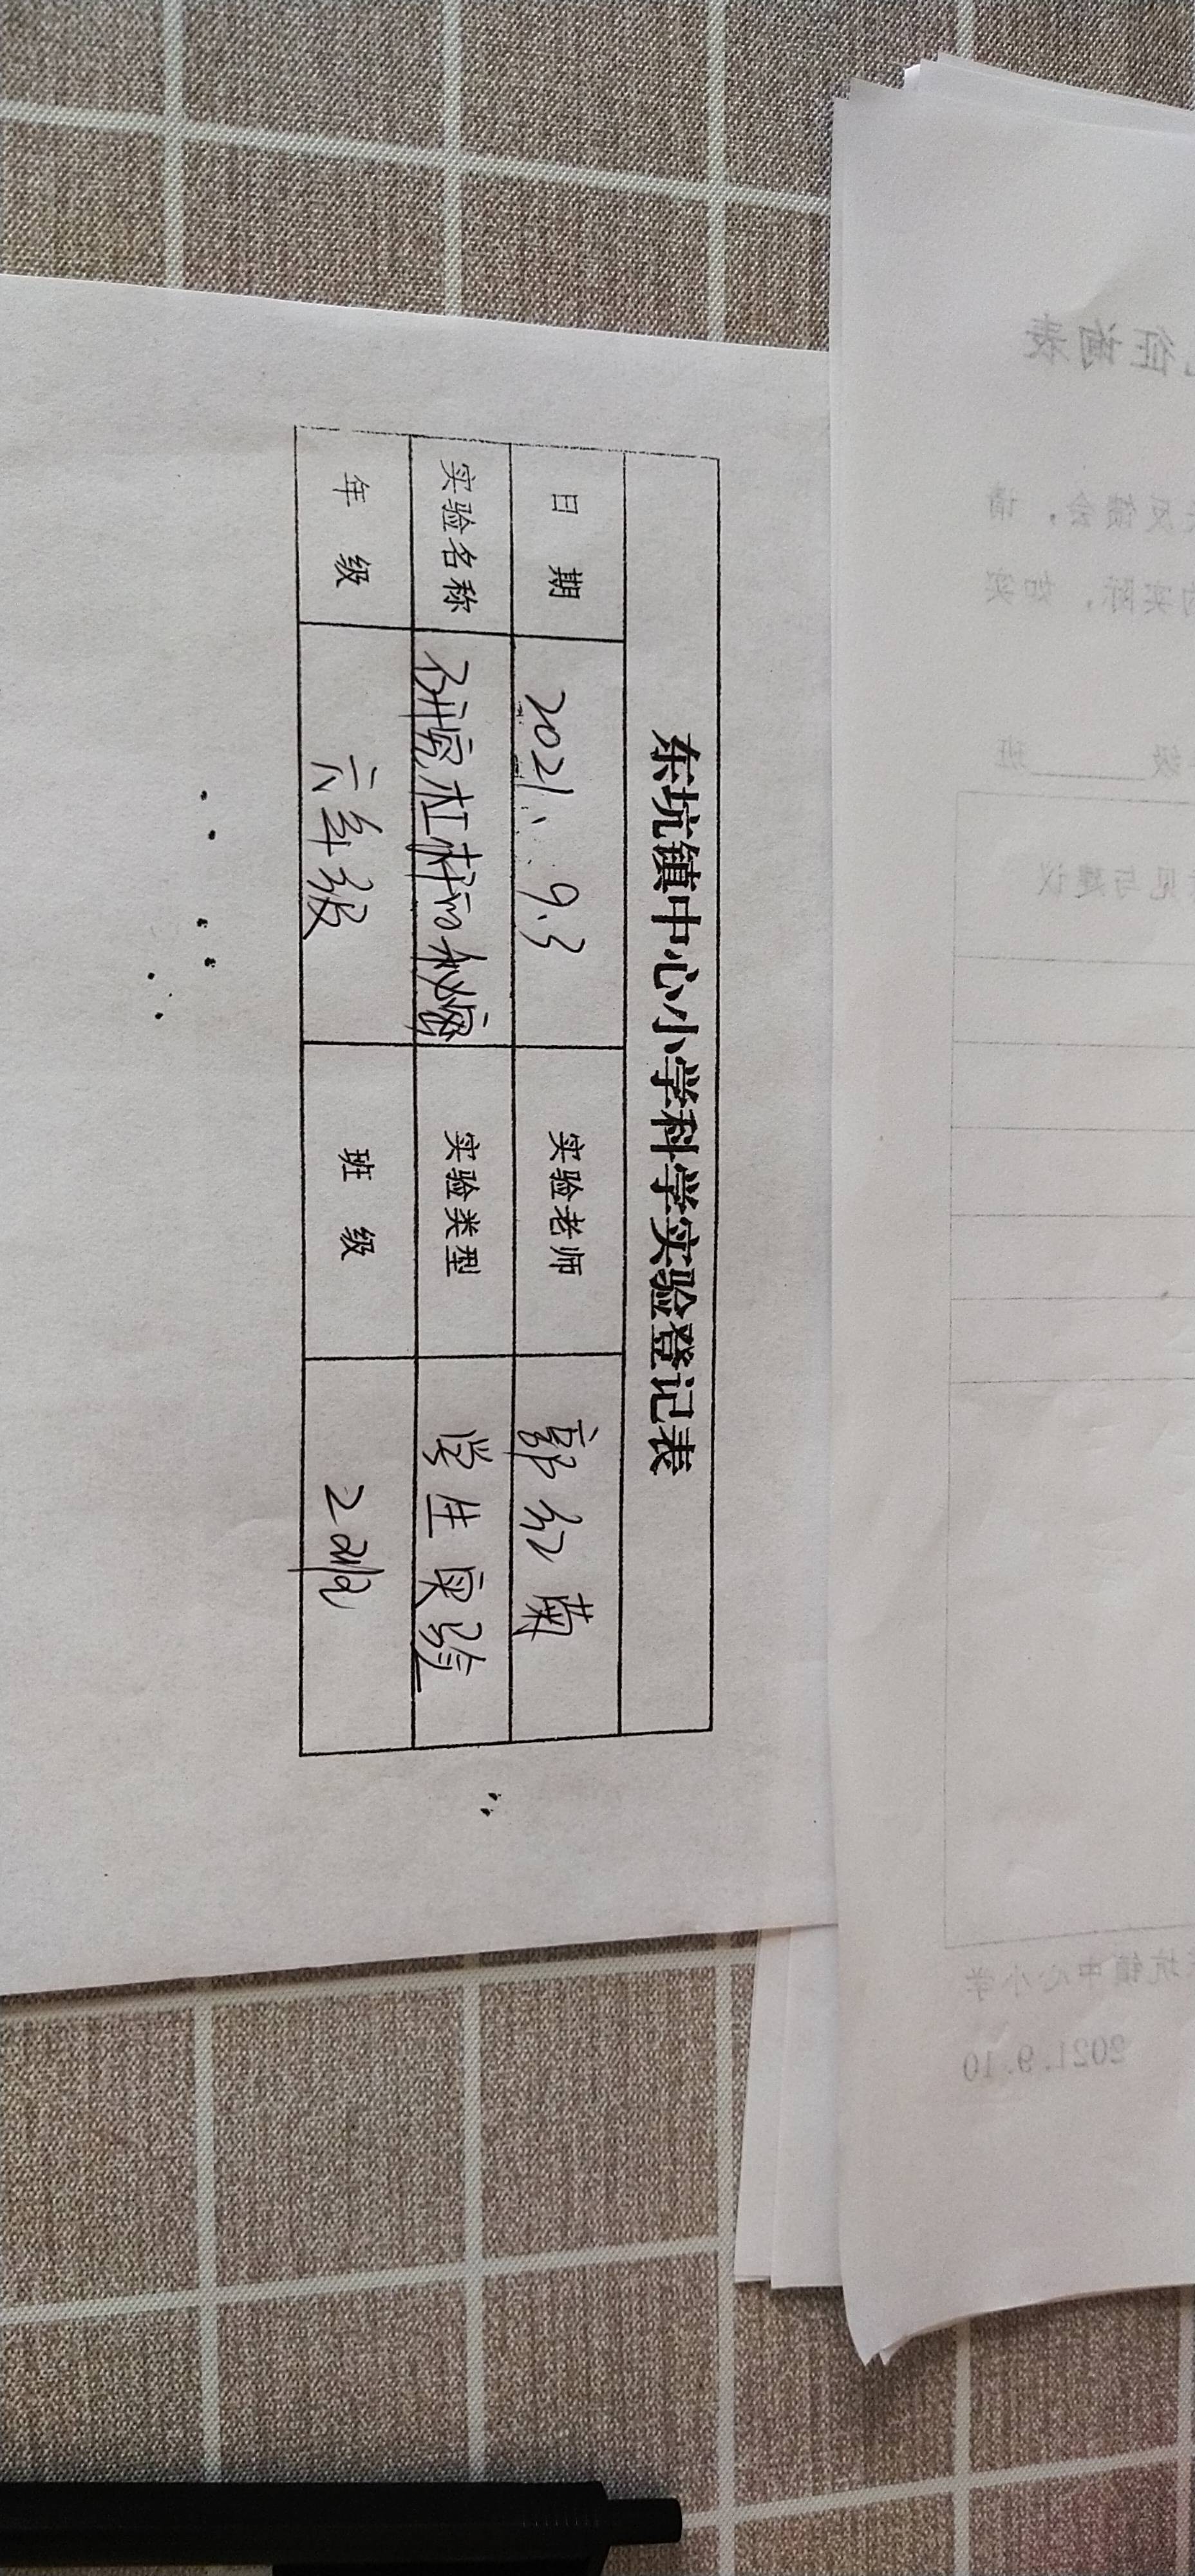 东坑镇中心小学科学实验登记表
日 期 2021、9.3 实验老师 郭红菊
实验名称 研究杠杆的秘密 实验类型 学生实验
年 级 六年级 班 级 2班
征询表
反馈会，请
实际，如实
级______班
见与建议
坑镇中心小学
2021.9.10